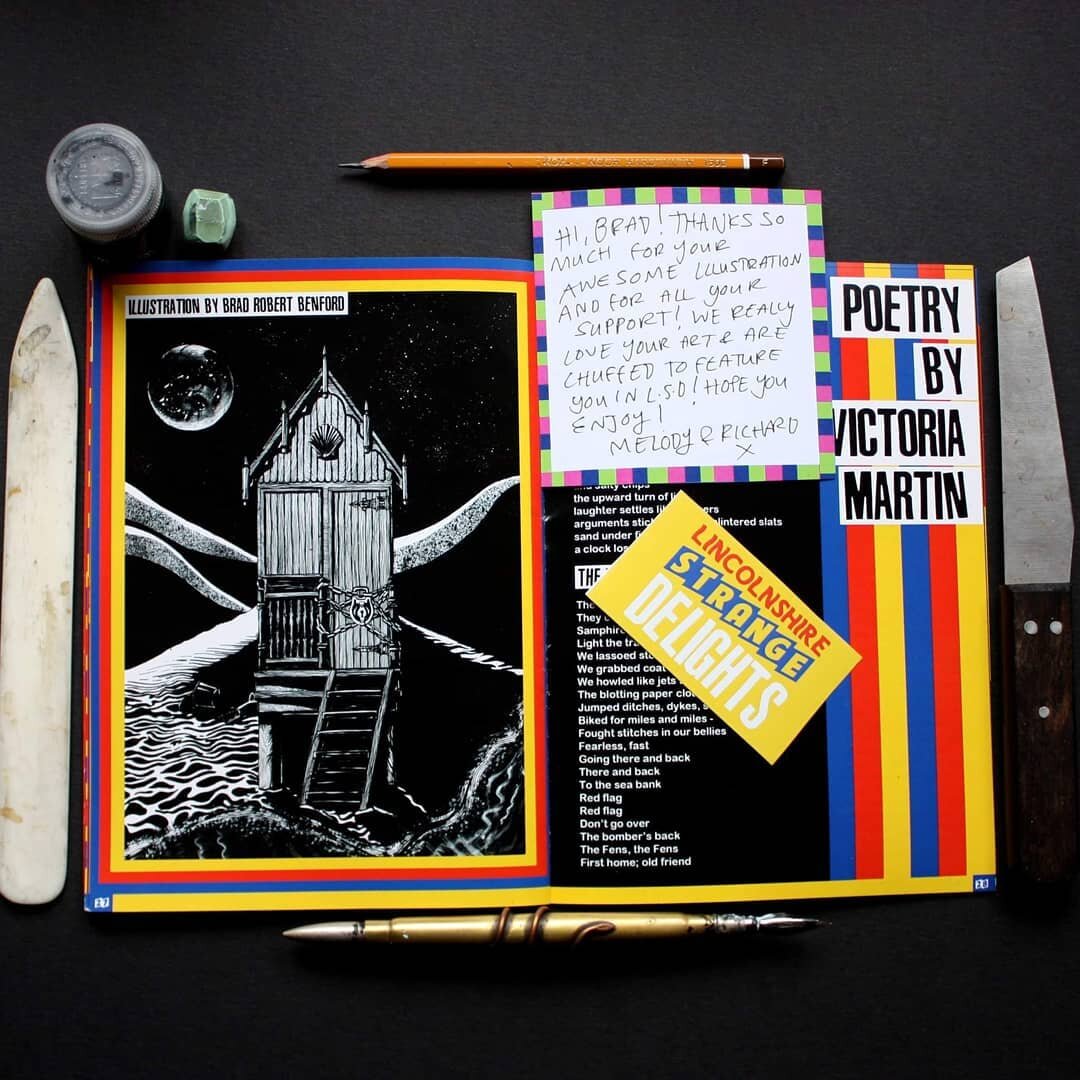 ILLUSTRATION BY BRAD ROBERT BENFORD
HI, BRAD! THANKS SO
MUCH FOR YOUR
AWESOME ILLUSTRATION
AND FOR ALL YOUR
SUPPORT! WE REALLY
LOVE YOUR ART & ARE
CHUFFED TO FEATURE
YOU IN L.S.D! HOPE YOU
ENJOY!
MELODY & RICHARD
X
POETRY
BY
VICTORIA
MARTIN
salty chips
the upward turn of
laughter settles
arguments splintered slats
sand under
a clock
THE
LINCOLNSHIRE
STRANGE
DELIGHTS
They
Light the
We lassoed
We grabbed
We howled like jets
The blotting paper
Jumped ditches, dykes,
Biked for miles and miles -
Fought stitches in our bellies
Fearless, fast
Going there and back
There and back
To the sea bank
Red flag
Red flag
Don't go over
The bomber's back
The Fens, the Fens
First home; old friend
27
28